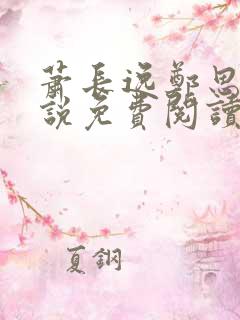 蕭長逸鄭思
說免費閱讀
夏鋼